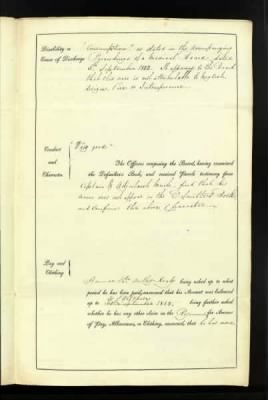 Disability or
Cause of Discharge
"Consumption" as stated in the accompanying
Proceedings of a Medical Board dated
5th September 1882. It appears to the Board
that this case is not attributable to
Vice or Intemperance.
Conduct
and
Character
"Very good"
The Officers composing the Board, having examined
the Defaulter's Book, and received Parole testimony from
Captain find that his
name does not appear in the Defaulters' Book
and confirm the above Character.
Pay and
Clothing
being asked up to what
period he has been paid, answered that his Account was balanced
up to September 1882, being further asked
whether he has any other claim on the Regiment for Arrears
of Pay, Allowances, or Clothing, answered, that he has none